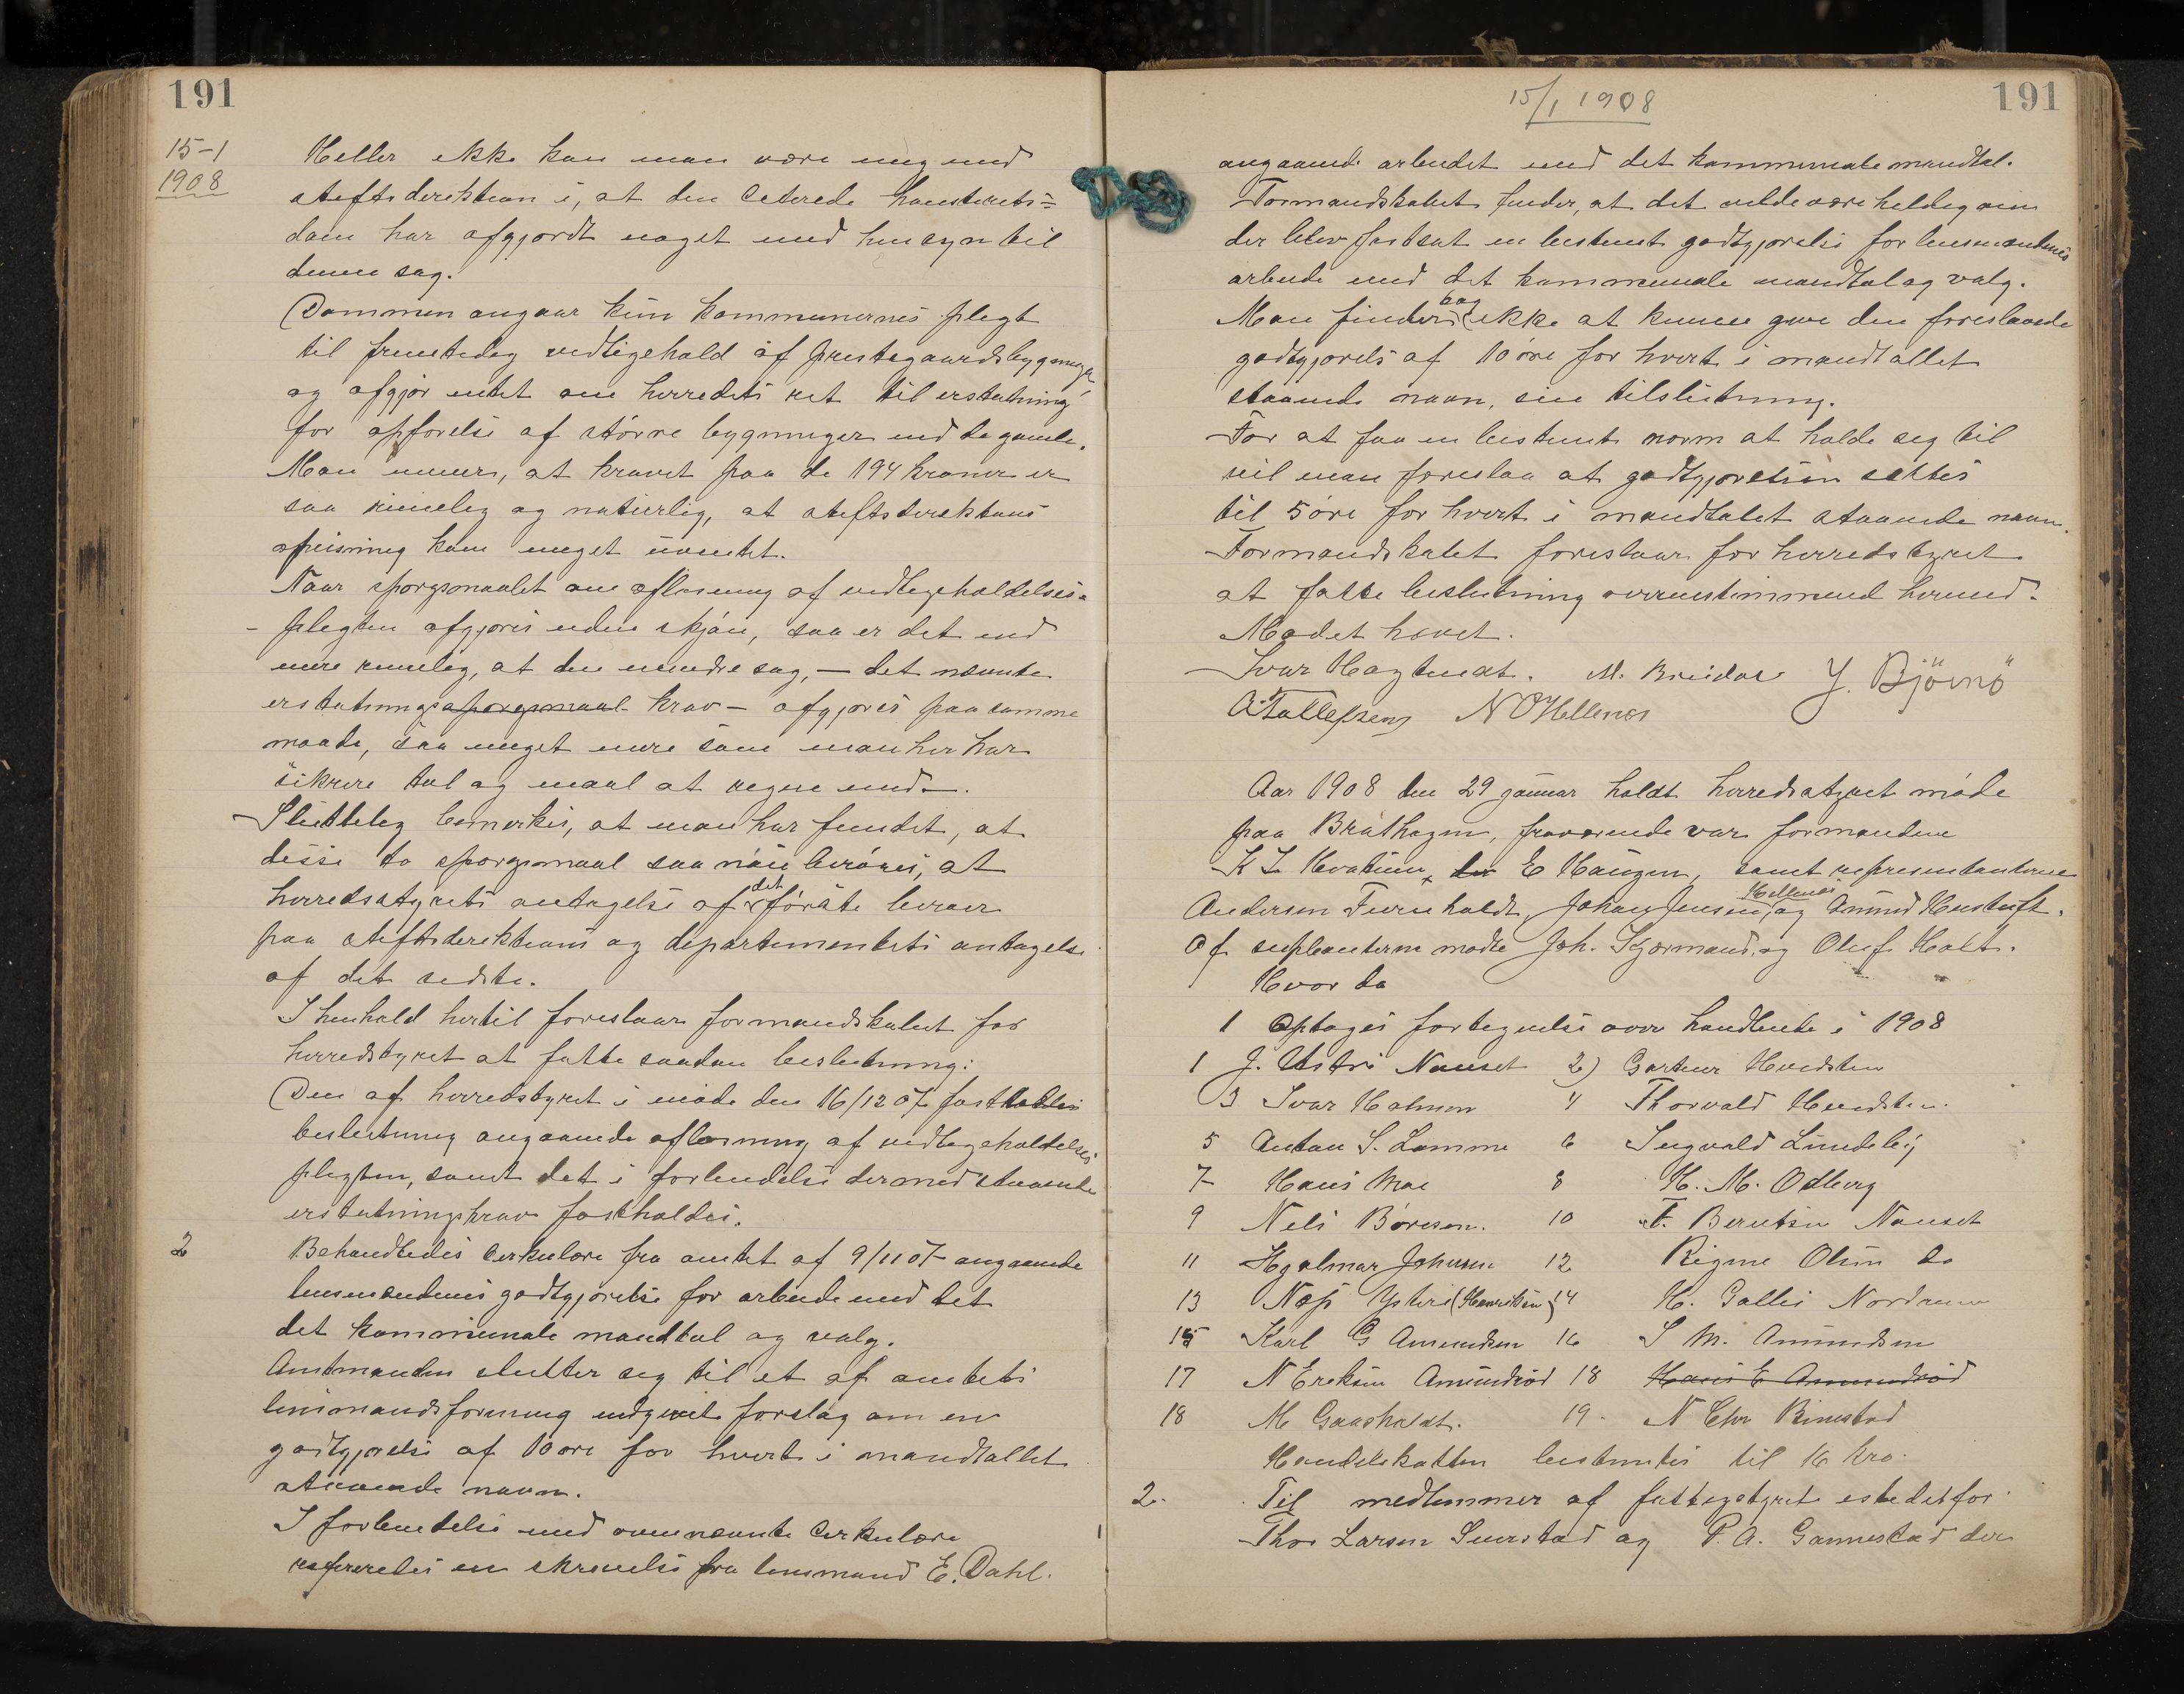 191
15-1
1908
Heller ikke kan man være enig med
stiftsdirektion i, at den citerede høiesterets=
dom har afgjordt noget med hensyn til
denne sag.
Dommen angaar kun kommunernes pligt
til fremtidig vedligehold af prestegaardsbygninger
og afgjør intet om herredets ret til erstatning
for opførelse af større bygninger end de gamle.
Man mener, at kravet paa de 194 kroner er
saa rimelig og naturlig, at stiftsdirektions
afvisning kom meget uventet.
Naar spørgsmaalet om afløsning af vedligeholdelses-
- pligten afgjøres uden skjøn, saa er det end
mere rimelig, at den mindre sag, — det nævnte
erstatningsspørgsmaal krav — afgjøres paa samme
maade, saa meget mere som man her har
sikrere tal og maal at regne med.
Sluttelig bemerkes, at man har fundet, at
disse to spørgsmaal saa nøie berøres, at
herredsstyrets antagelse af det første beror
paa stiftsdirektions og departementets antagelse
af det sidste.
I henhold hertil foreslaar formandskabet for
herredstyret at fatte saadan beslutning:
Den af herredstyret i møde den 16/12 07 fattede
beslutning angaaende afløsning af vedligeholdelses
pligten, samt det i forbindelse dermed staaende
erstatningskrav fastholdes.
2 Behandledes cirkulære fra amtet af 9/11 07 angaaende
lensmændenes godtgjørelse for arbeide med det
det kommunale mandtal og valg.
Amtmanden slutter sig til et af amtets
lensmandsforening indgivet forslag om en
godtgjørelse af 10 øre for hvert i mandtallet
staaende navn.
I forbindelse med ovennævnte cirkulære
refereredes en skrivelse fra lensmand E. Dahl.
15/1 1908
191
angaaende arbeidet med det kommunale mandtal.
Formandskabet finder, at det vilde være heldig om
der blev fastsat en bestemt godtgjørelse for lensmændenes
arbeide med det kommunale mandtal og valg.
Man finder dog ikke at kunne give den foreslaaede
godtgjørels af 10 øre for hvert i mandtallet
staaende navn, sin tilslutning.
For at faa en bestemt norm at holde seg til
vil man foreslaa at godtgjørelsen sættes
til 5 øre for hvert i mandtalet staaende navn.
Formandskabet foreslaar for herredstyret
at fatte beslutning overenstimmend hermed.
Mødet hævet.
Ivar Hogtvedt. M. Breidos J. Björnö
A. Tollefsen N O Hellenes
Aar 1908 den 29 januar holdt herredsstyret møde
paa Bråthagen, fraværende var formændene
K L Kvatum, E Haugen, samt representanterne
Anderson Furuholdt, Johan Jensen, Hellenes og Amund Hestuft.
Af suplanterne mødte Joh. Skjørmand, og Oluf Holt.
Hvor da
1 Optoges fortegnelse over handlende i 1908
1 J. Ustri Nauset 2) Gartner Hvidsten
3 Ivar Holmen 4 Thorvald Hvidsten.
5 Anton S. Lomme 6 Ingvald Lindelöj
7 Hans Moe 8 H. M. Odberg
9 Nils Børesen. 10 F. Berntsen Nauset
11 Hjalmar Johnsen 12 Rigme Olsen do
13 Ysteri (Henriksen) 14 H. Gallis Nordrum
15 Karl G Amundsen 16 S M. Amundsen
17 N Eriksen Amundrød 18 Hans E Amundrød
18 M Gaasholdt. 19. N Chr Rimestad
Handelskatten bestemtes til 16 kro.
2. Til medlemmer af fattigstyret istedetfor
Thor Larsen Sverstad og P. A. Gannestad der